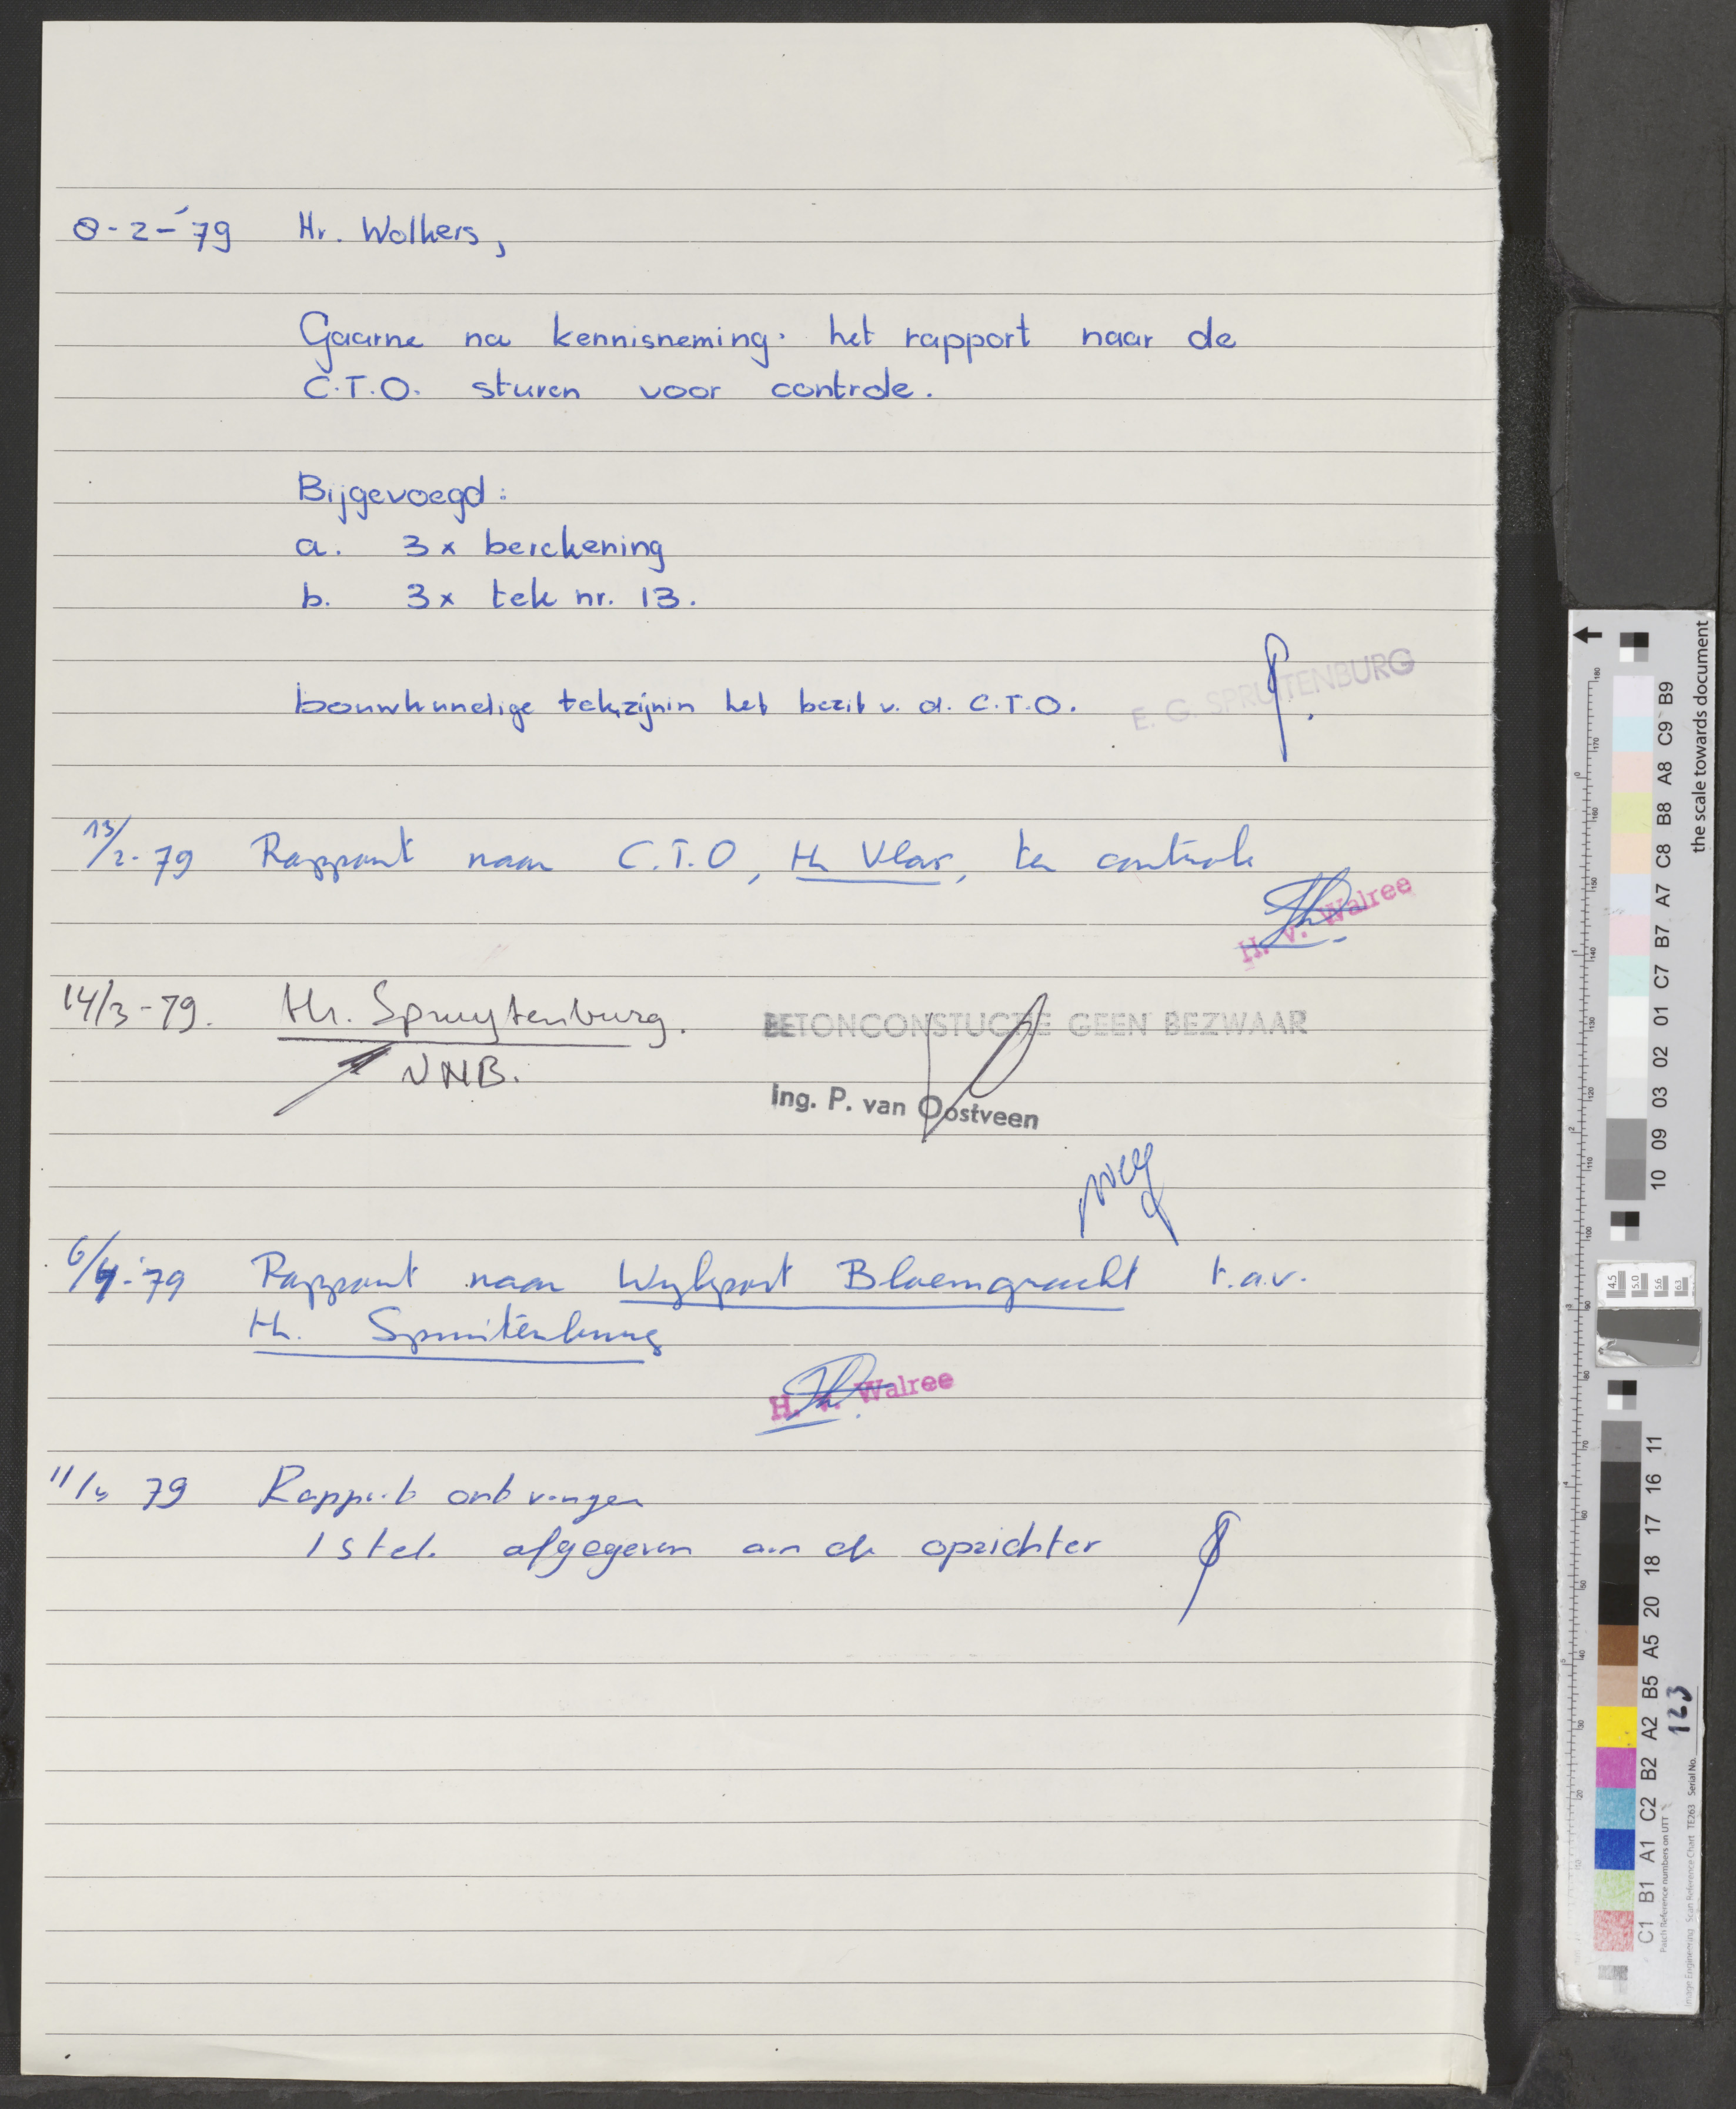 8-2-'79 Hr. Wolkers,
Gaarne na kennisneming. het rapport naar de
C.T.O. sturen voor controle.
Bijgevoegd:
a. 3x berekening
b. 3x tek nr. 13.
bouwkundige tek. zijn in het bezit v. d. C.T.O.
E. G. SPRUITENBURG
13/2-79 Rapport naar C.T.O, Hr Vlas, ter controle
H. v. Walree
14/3-79. Hr. Spruytenburg. BETONCONSTUCTIE GEEN BEZWAAR
Ing. P. van Oostveen
6/4-'79 Rapport naar Wijkpost Bloemgracht t.a.v.
Hr. Spruitenburg
H. v. Walree
11/4 79 Rapport ontvangen
1 stel. afgegeven aan de opzichter
the scale towards document
B9
C9
A8
B8
C8
A7
B7
C7
01
02
03
09
10
11
16
17
18
20
A5
B5
A2
B2
C2
A1
B1
C1
123
Image Engineering Scan Reference Chart TE263 Serial No.
Patch Reference numbers on UTT